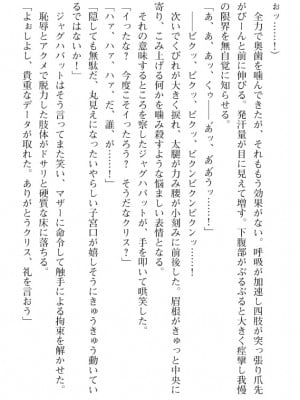 おッ……！）
　全力で奥歯を噛んできたが、それももう効果がない。呼吸が加速し四肢が突っ張り爪先
がびーんと前に伸びる。発汗量が目に見えて増す。下腹部がぶるぶると大きく痙攣し我慢
の限界を無自覚に知らせる。
「あ、あ、あっ、くぅ――あッ、ああうッ……！」
――ビクッ、ビクッ、ビクッ、ビクンビクンビクンッ……！
　次いでくびれが大きく捩れ、太腿が力み腰が小刻みに前後した。眉根がきゅっと中央に
寄り、こみ上げる何かを噛み殺すような悩ましい表情となる。
　それの意味するところを察したジャグハバットが、手を叩いて哄笑した。
「イったな？　今度こそイったろう？　そうだなクリス？」
「ハァ、ハァ、ハァ、だ、誰が、……！」
「隠しても無駄だ、丸見えになったいやらしい子宮口が嬉しそうにきゅうきゅう動いてい
るではないか！」
　ジャグハバットはそう言ってまた笑い、マザーに命令して触手による拘束を解かせた。
　恥辱とアクメで脱力した肢体がドサリと硬質な床に落ちる。
「よしよし、貴重なデータが取れた。ありがとうクリス、礼を言おう」